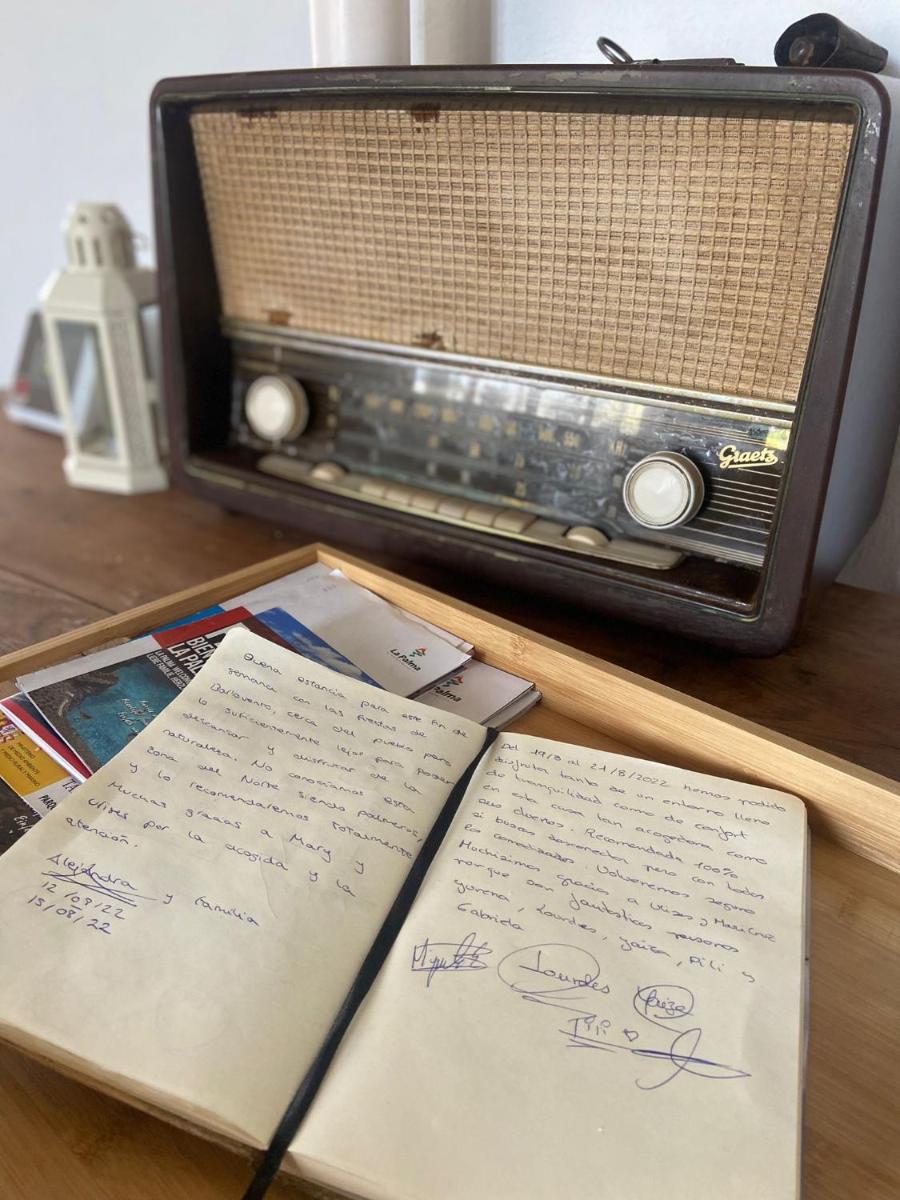 Graetz
La Palma
Palma
BIEN
LA PAL
Buena estancia para este fin de
semana con las fiestas de
Barlovento, cerca del pueblo pero
lo suficientemente lejos para poder
descansar y disfrutar de la
naturaleza. No conocíamos esta
zona del Norte siendo palmeros,
y lo recomendaremos totalmente
Muchas gracias a Mary y
Ulises por la acogida y la
atención.
Alejandra y familia
12/08/22
15/08/22
Del 19/8 al 21/8/2022 hemos podido
disfrutar tanto de un entorno lleno
de tranquilidad como de confort
en esta casa tan acogedora como
sus dueños. Recomendada 100%
si buscas desconectar pero con todas
las comodidades. Volveremos seguro
Muchísimas gracias a Ulises y Mari Cruz
porque son fantásticas personas
Lourdes, Yaiza, Pili y
Gabriela
Lourdes
Yaiza
Pili